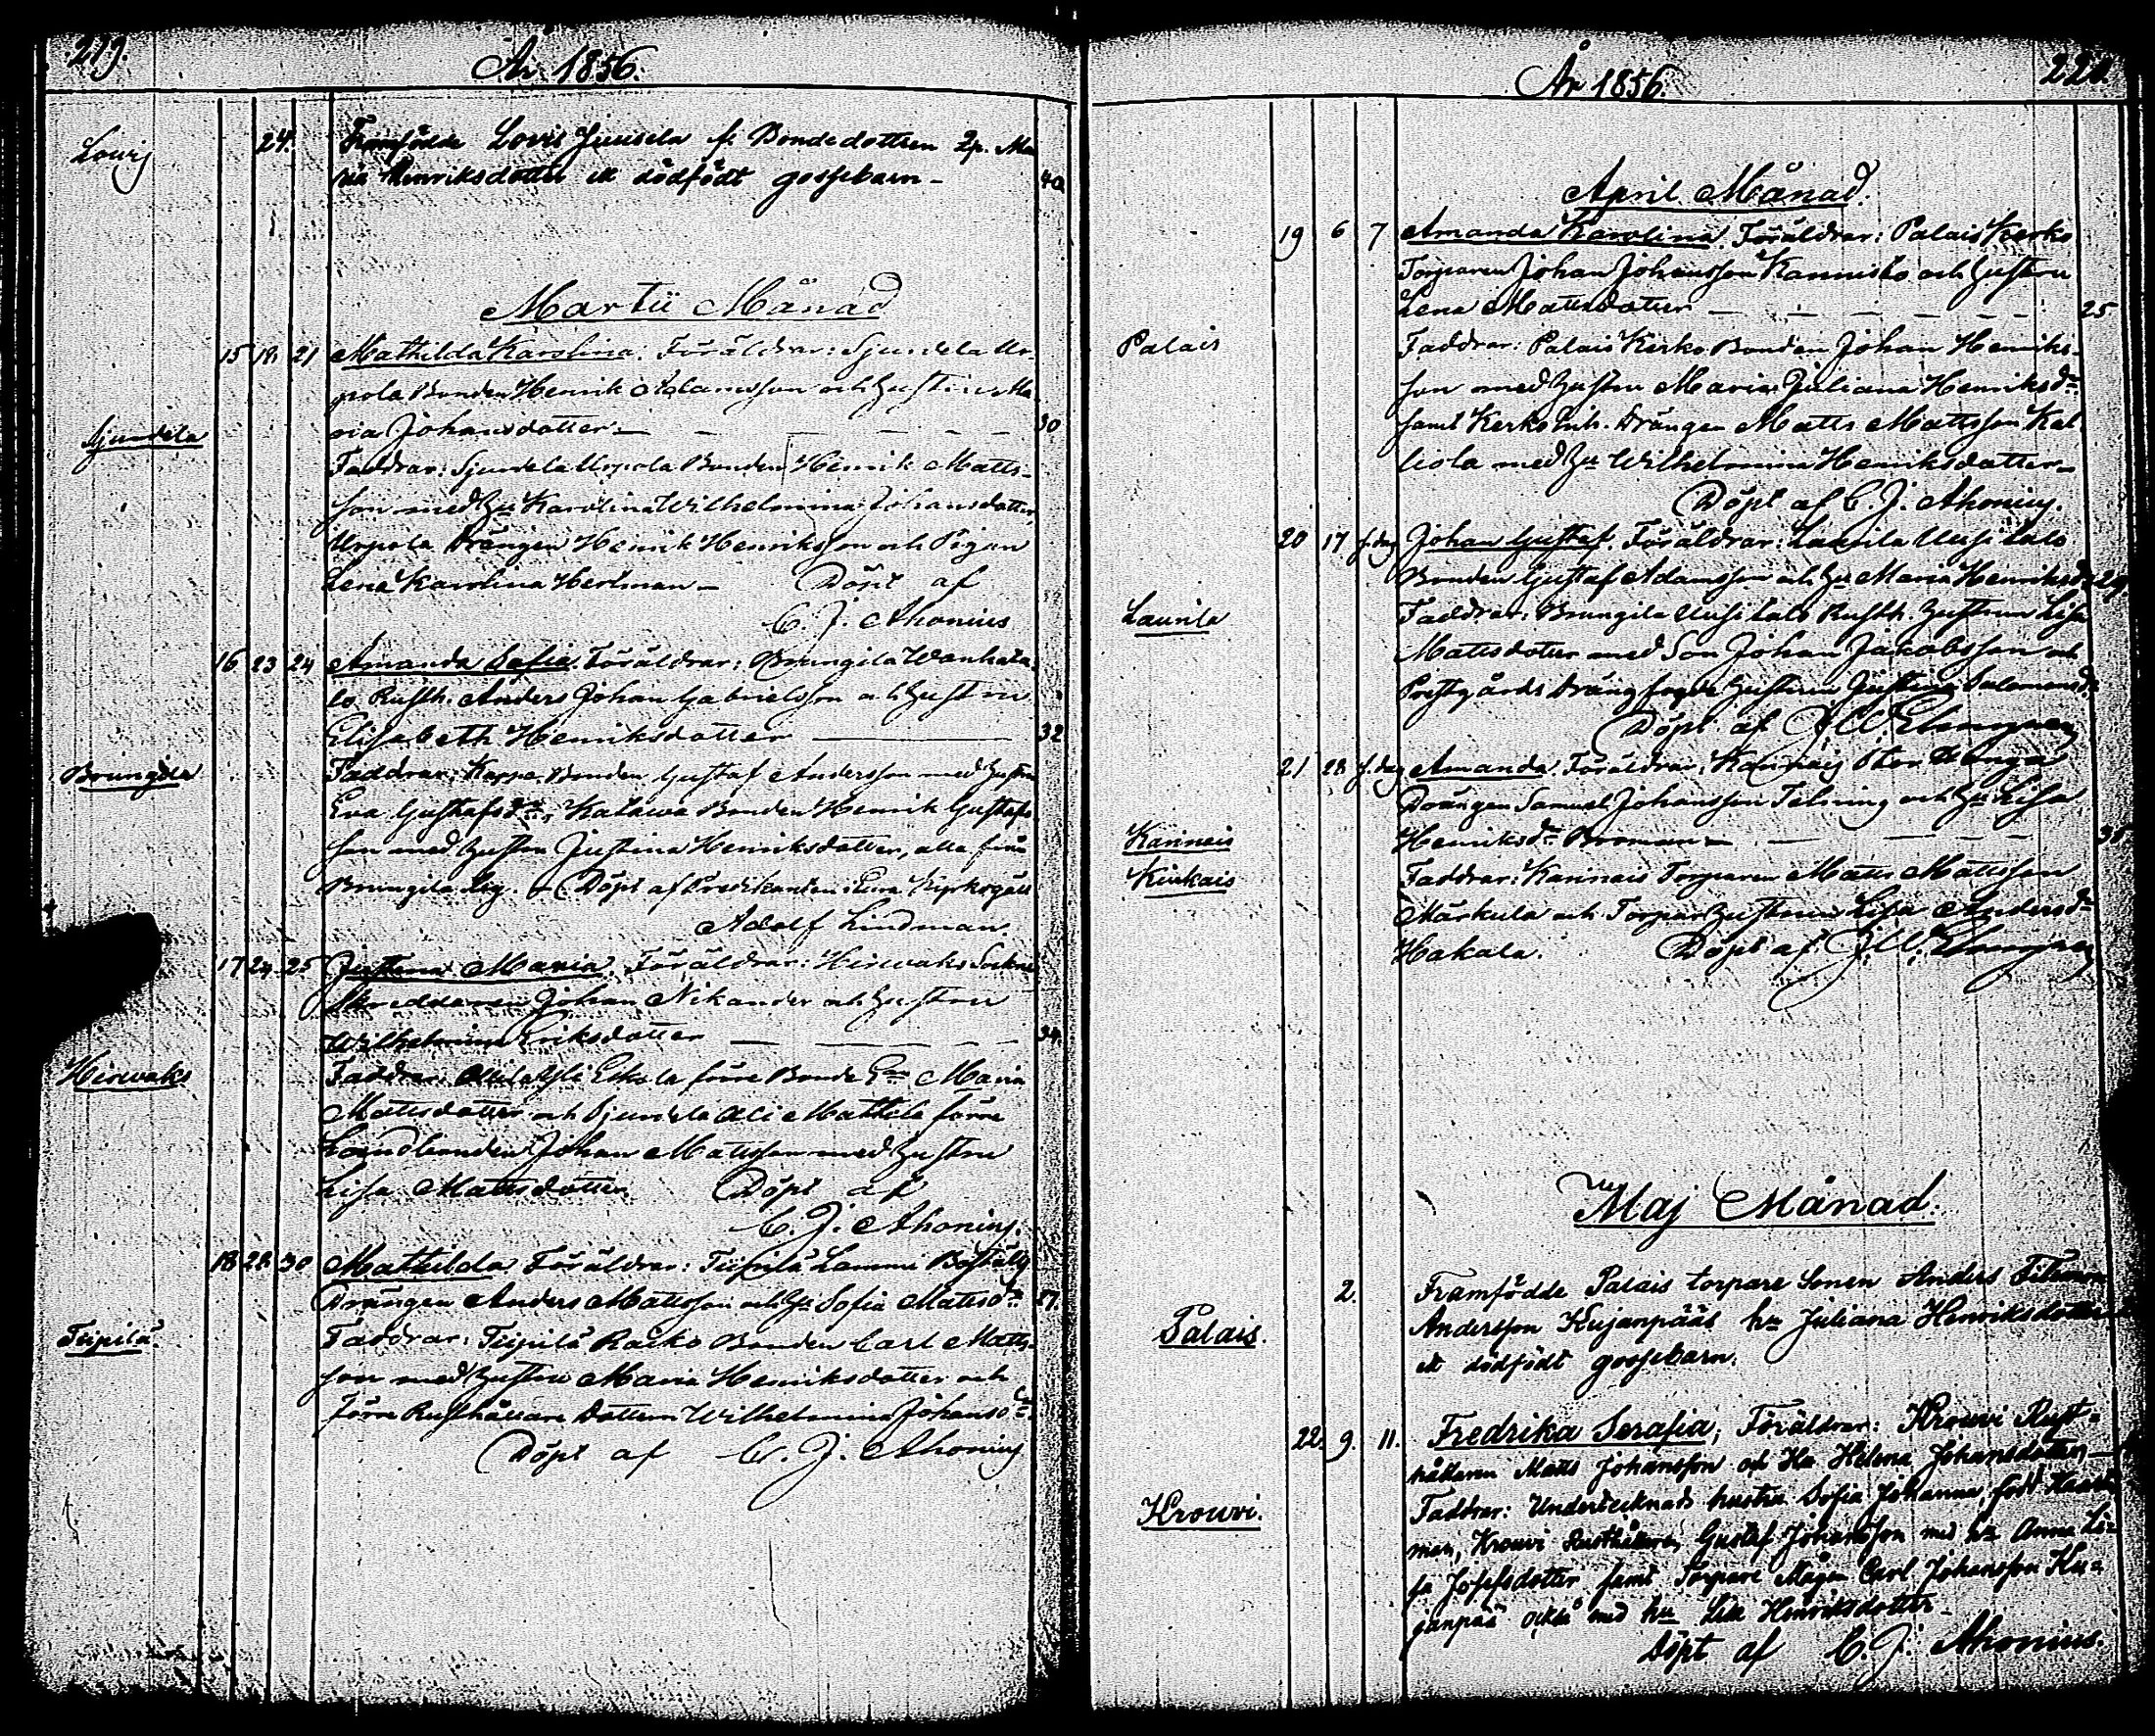 219.
År 1856.
Lovis
24. Framfödde Lovis Juusela f. Bondedottren Ma
ria Henriksdotter ett dödfödt gossebarn – 40
Martii Månad
15 18. 21 Mathilda Karolina. Föräldrar: Sjundela Ur
pola Bonden Henrik Adamsson och Hustru Ma
Sjundela
ria Johansdotter – 30
Faddrar: Sjundela Urpola Bonden Henrik Matts-
son med Hu Karolina Wilhelmina Johansdotter,
Urpola Drängen Henrik Henriksson och Pigan
Lena Karolina Hertman – Döpt af
C. J. Ahonius
16 23 24 Amanda Sofia. Föräldrar: Brungila Wanhata
lo Rusth. Anders Johan Gabrielsson och Hustru
Elisabeth Henriksdotter 32
Brungila
Faddrar: Kappa Bonden Gustaf Andersson med Hustru
Eva Gustafsdr, Katawa Bonden Henrik Gustafs
son med Hustru Justina Henriksdotter, alla från
Brungila by. – Döpt af Predikanten i Eura Kyrkogäll
Adolf Lindman.
17 24 25 Justina Maria. Föräldrar: Hirwaks Sockne
Skreddaren Johan Nikander och Hustru
Wilhelmina Eriksdotter 34
Hirwaks
Faddrar: Eskola förre Bonde Maria
Mattsdotter och Sjundela Ali Mattila förre
Landbonden Johan Mattsson med Hustru
Lisa Mattsdotter. Döpt af
C. J. Ahonius.
18 28 30 Mathilda Föräldrar: Tupila Lammi Boställs
Drängen Anders Mattsson och Hu Sofia Mattsdr 27.
Tupila
Faddrar: Tupila Raiko Bonden Carl Matts-
son med Hustru Maria Henriksdotter och
förre Rusthållare Dottern Wilhelmina Johansdr.
Döpt af C. J. Ahonius
År 1856.
220.
April Månad.
19 6 7 Amanda Karolina. Föräldrar: Palais Kerko
Torparen Johan Johansson Kannisto och Hustru
Lena Mattsdotter 25
Palais
Faddrar: Palais Kerko Bonden Johan Henriks-
son med Hustru Maria Juliana Henriksdr
samt Kerko Drängen Matts Mattsson Kal
liola med Hu Wilhelmina Henriksdotter –
Döpt af C. J. Ahonius.
20 17 s. dag Johan Gustaf. Föräldrar: Laurila Uusi talo
Bonden Gustaf Adamsson och Hu Maria Henriksdr 29
Laurila
Faddrar: Brungila Uusi talo Rusth. Hustrun Lisa
Mattsdotter med Son Johan Jakobsson och
Prestgårds Drängfogde Hustrun Justina Salomonsdr
Döpt af
21 28 s. dag Amanda. Föräldrar: Karinais Stor Knaga
Drängen Samuel Johansson Telning och Hu Lisa
Karinais
Henriksdr Broman –
Kiukais
Faddrar: Karinais Torparen Matts Mattsson
Märkula och Torpar Hustrun Lisa Andersdr
Hakala. Döpt af
Maj Månad.
2. Framfödde Palais torpare Sonen Anders
Palais.
Andersson Kujanpääs hu Juliana Henriksdotter
ett dödfödt gossebarn.
22. 9. 11. Fredrika Serafia; Föräldrar: Krouvi Rust-
hållaren Matts Johansson och Hu Helena Johansdotter, –
Krouvi.
Faddrar: Undertecknads hustru Sofia Johanna, född
man, Krouvi Rusthållaren Gustaf Johansson med hu Anna Li-
sa Josefsdotter samt Torpare Mågen Carl Johansson Ku-
janpää också med hu Lisa Henriksdotter –
Döpt af C. J. Ahonius.